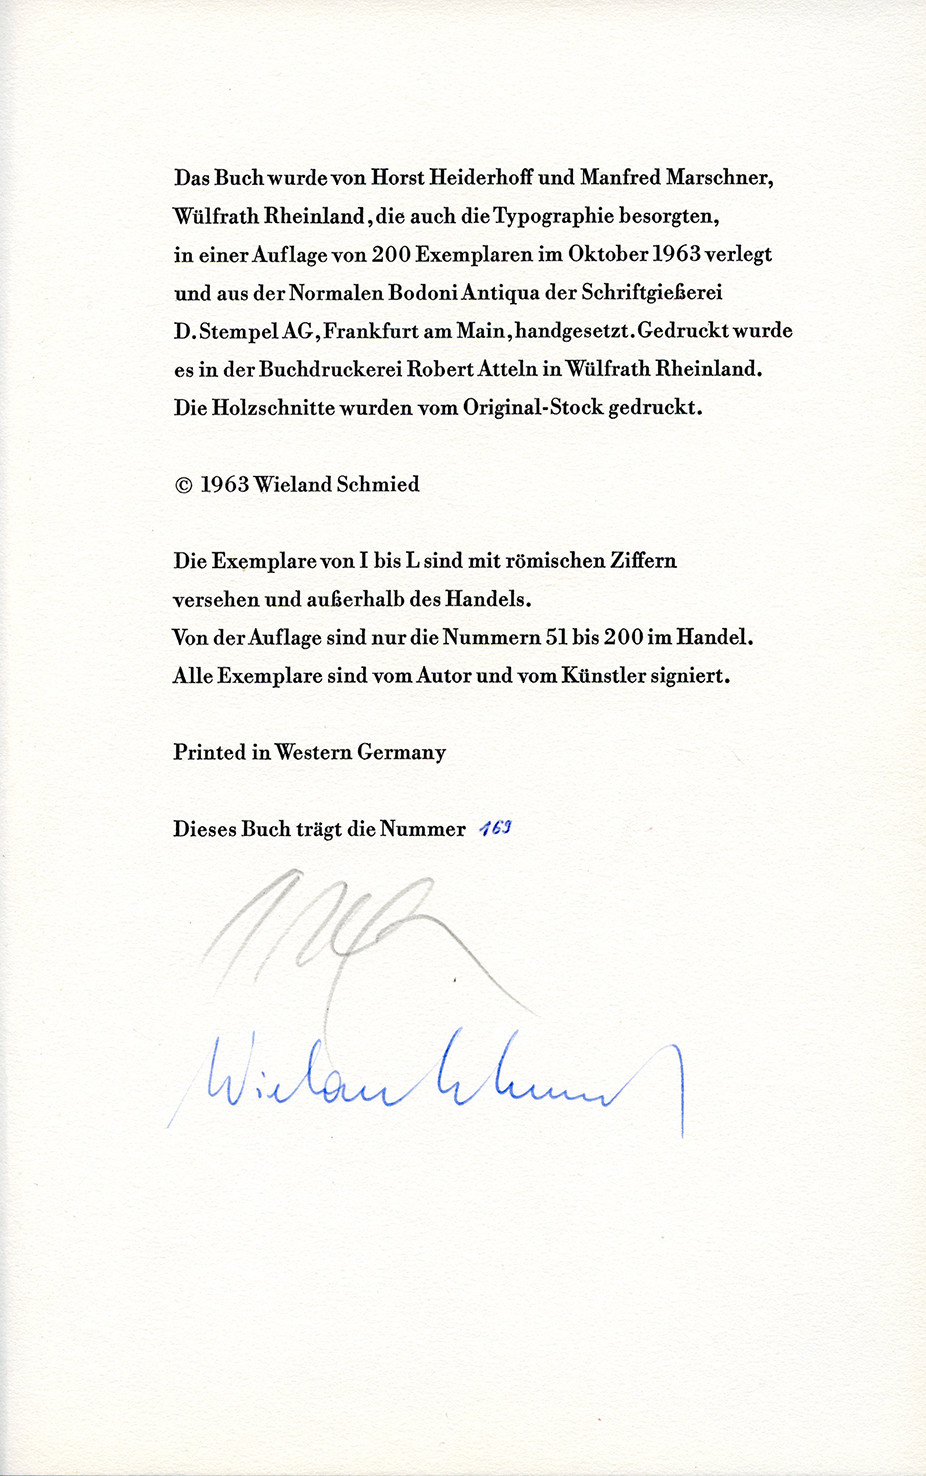 Das Buch wurde von Horst Heiderhoff und Manfred Marschner,
Wülfrath Rheinland, die auch die Typographie besorgten,
in einer Auflage von 200 Exemplaren im Oktober 1963 verlegt
und aus der Normalen Bodoni Antiqua der Schriftgießerei
D. Stempel AG, Frankfurt am Main, handgesetzt. Gedruckt wurde
es in der Buchdruckerei Robert Atteln in Wülfrath Rheinland.
Die Holzschnitte wurden vom Original-Stock gedruckt.
© 1963 Wieland Schmied
Die Exemplare von I bis L sind mit römischen Ziffern
versehen und außerhalb des Handels.
Von der Auflage sind nur die Nummern 51 bis 200 im Handel.
Alle Exemplare sind vom Autor und vom Künstler signiert.
Printed in Western Germany
Dieses Buch trägt die Nummer 169
Wieland Schmied